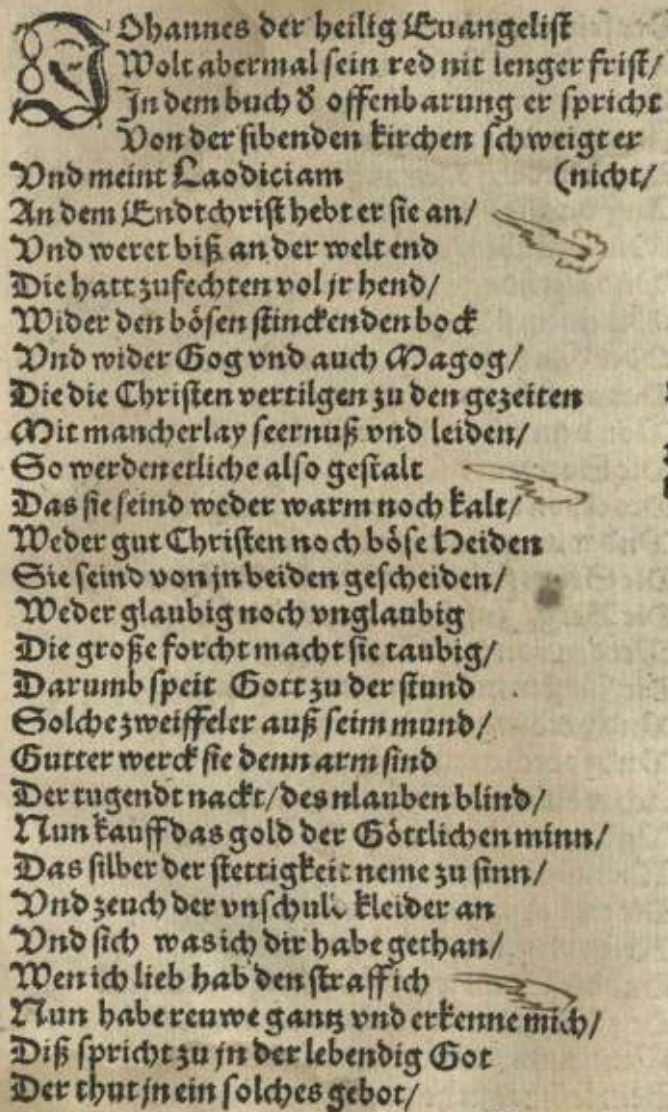 JOhannes der heilig Euangelist
Wolt abermal sein red nit lenger frist/
In dem buch d̕ offenbarung er spricht
Von der sibenden kirchen schweigt er
Vnd meint Laodiciam (nicht/
An dem Endtchrist hebt er sie an/
Vnd weret biß an der welt end
Die hatt zufechten vol jr hend/
Wider den bösen stinckenden bock
Vnd wider Gog vnd auch Magog/
Die die Christen vertilgen zu den gezeiten
Mit mancherlay seernuß vnd leiden/
So werden etliche also gestalt
Das sie seind weder warm noch kalt/
Weder gut Christen noch böse Heiden
Sie seind von jn beiden gescheiden/
Weder glaubig noch vnglaubig
Die große forcht macht sie taubig/
Darumb speit Gott zu der stund
Solche zweiffeler auß seim mund/
Gutter werck sie denn arm sind
Der tugendt nackt/ des nlauben blind/
Nun kauff das gold der Göttlichen minn/
Das silber der stettigkeit neme zu sinn/
Vnd zeuch der vnschuld kleider an
Vnd sich was ich dir habe gethan/
Wen ich lieb hab den straff ich
Nun habe reuwe gantz vnd erkenne mich/
Diß spricht zu jn der lebendig Got
Der thut jn ein solches gebot/